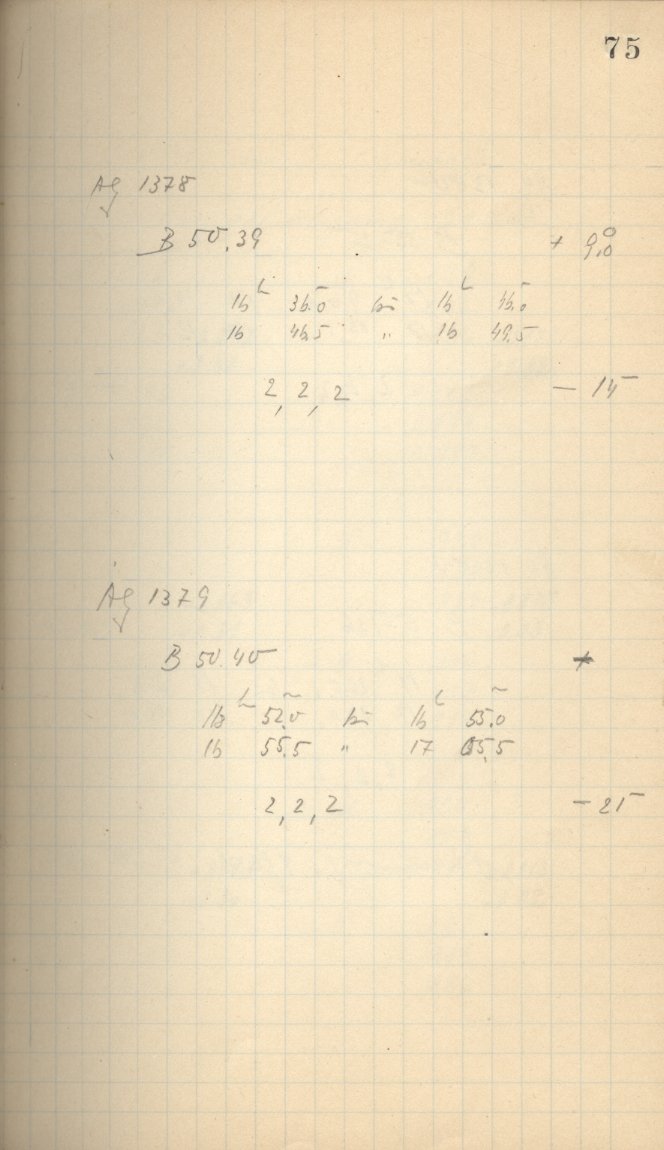 75
Ag 1378
B 50.39 + 9°.0
16ʰ 36.0ᵐ bis 16ʰ 46.0ᵐ
16 46.5 " 16 49.5
2, 2, 2 — 15
Ag 1379
B 50.40 +
16ʰ 52.0ᵐ bis 16ʰ 55.0ᵐ
16 55.5 " 17 55.5
2, 2, 2 — 25